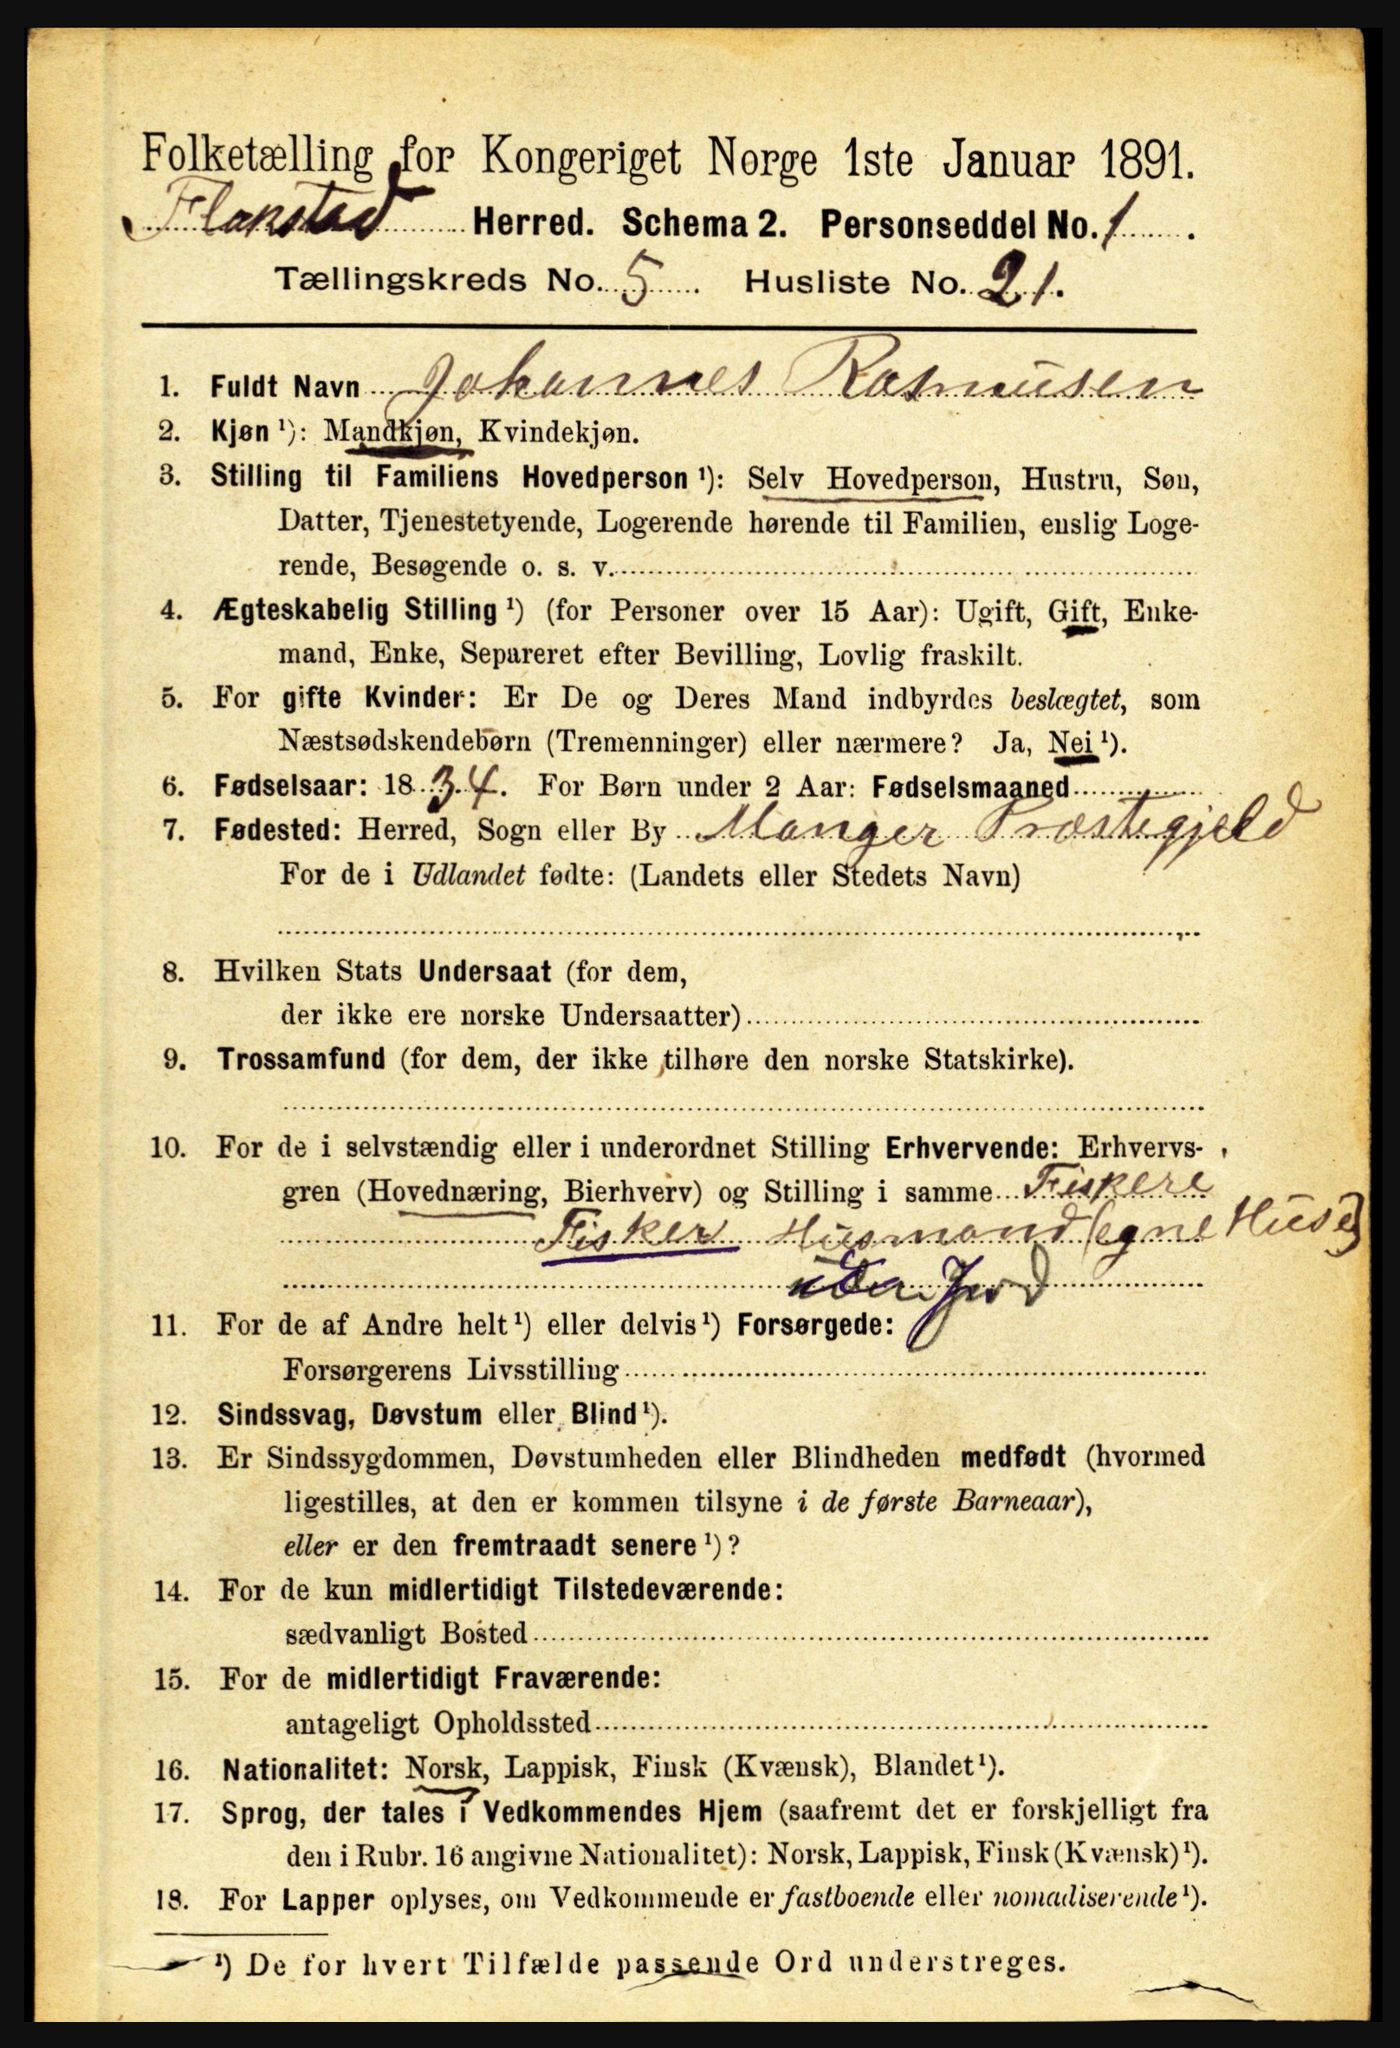 Folketælling for Kongeriget Norge 1ste Januar 1891.
Flakstad Herred. Schema 2. Personseddel No. 1.
Tællingskreds No. 5. Husliste No. 21.
1. Fuldt Navn Johannes Rasmusen
2. Kjøn ¹): Mandkjøn, Kvindekjøn.
3. Stilling til Familiens Hovedperson ¹): Selv Hovedperson, Hustru, Søn,
Datter, Tjenestetyende, Logerende hørende til Familien, enslig Loge-
rende, Besøgende o. s. v.
4. Ægteskabelig Stilling ¹) (for Personer over 15 Aar): Ugift, Gift, Enke-
mand, Enke, Separeret efter Bevilling, Lovlig fraskilt.
5. For gifte Kvinder: Er De og Deres Mand indbyrdes beslægtet, som
Næstsødskendebørn (Tremenninger) eller nærmere? Ja, Nei ¹).
6. Fødselsaar: 1834. For Børn under 2 Aar: Fødselsmaaned
7. Fødested: Herred, Sogn eller By Manger Præstegjeld
For de i Udlandet fødte: (Landets eller Stedets Navn)
8. Hvilken Stats Undersaat (for dem,
der ikke ere norske Undersaatter)
9. Trossamfund (for dem, der ikke tilhøre den norske Statskirke).
10. For de i selvstændig eller i underordnet Stilling Erhvervende: Erhvervs-
gren (Hovednæring, Bierhverv) og Stilling i samme Fiskere
Fisker Husmand (egne Huse)
uden Jord
11. For de af Andre helt ¹) eller delvis ¹) Forsørgede:
Forsørgerens Livsstilling
12. Sindssvag, Døvstum eller Blind ¹).
13. Er Sindssygdommen, Døvstumheden eller Blindheden medfødt (hvormed
ligestilles, at den er kommen tilsyne i de første Barneaar),
eller er den fremtraadt senere ¹)?
14. For de kun midlertidigt Tilstedeværende:
sædvanligt Bosted
15. For de midlertidigt Fraværende:
antageligt Opholdssted
16. Nationalitet: Norsk, Lappisk, Finsk (Kvænsk), Blandet ¹).
17. Sprog, der tales i Vedkommendes Hjem (saafremt det er forskjelligt fra
den i Rubr. 16 angivne Nationalitet): Norsk, Lappisk, Finsk (Kvænsk) ¹).
18. For Lapper oplyses, om Vedkommende er fastboende eller nomadiserende ¹).
¹) De for hvert Tilfælde passende Ord understreges.